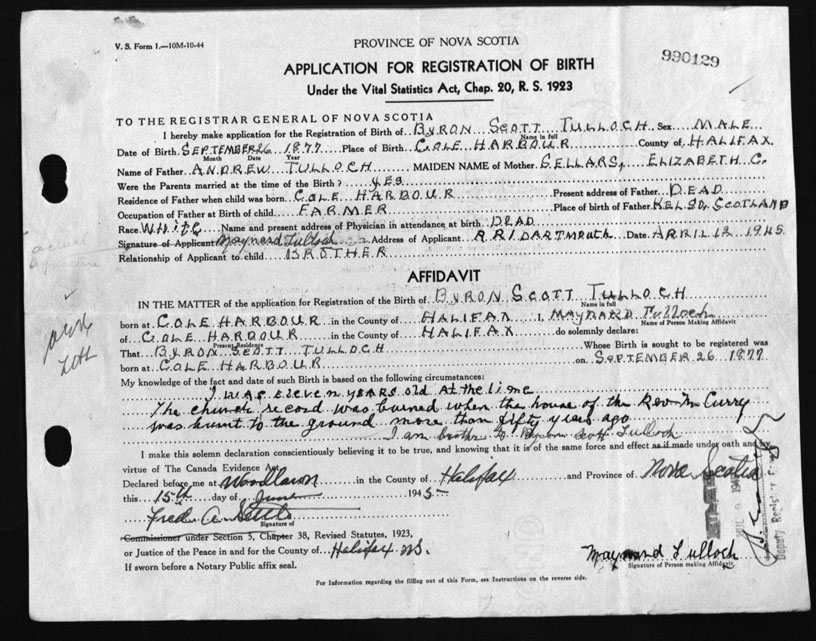 V. S. Form 1.—10M-10-44
PROVINCE OF NOVA SCOTIA
990129
APPLICATION FOR REGISTRATION OF BIRTH
Under the Vital Statistics Act, Chap. 20, R. S. 1923
TO THE REGISTRAR GENERAL OF NOVA SCOTIA
I hereby make application for the Registration of Birth of BYRON SCOTT TULLOCH Sex MALE
Name in full
Date of Birth SEPTEMBER 26 1877 Place of Birth COLE HARBOUR County of HALIFAX
Month Date Year
Name of Father ANDREW TULLOCH MAIDEN NAME of Mother SELLARS, ELIZABETH C.
Were the Parents married at the time of the Birth? YES
Residence of Father when child was born COLE HARBOUR Present address of Father DEAD
Occupation of Father at Birth of child FARMER Place of birth of Father KELSO, SCOTLAND
Race WHITE Name and present address of Physician in attendance at birth DEAD
Signature of Applicant Maynard Tulloch Address of Applicant R R 1 DARTMOUTH Date APRIL 12 1945
Relationship of Applicant to child BROTHER
AFFIDAVIT
IN THE MATTER of the application for Registration of the Birth of BYRON SCOTT TULLOCH
Name in full
born at COLE HARBOUR in the County of HALIFAX I, MAYNARD Tulloch
Name of Person Making Affidavit
of COLE HARBOUR in the County of HALIFAX do solemnly declare:
Present Residence
That BYRON SCOTT TULLOCH Whose Birth is sought to be registered was
born at COLE HARBOUR on SEPTEMBER 26 1877
My knowledge of the fact and date of such Birth is based on the following circumstances:
I WAS ELEVEN YEARS OLD At the time
The church record was burned when the house of the Rev Mr Curry
was burnt to the ground more than fifty years ago
I am brother to Byron Scott Tulloch
I make this solemn declaration conscientiously believing it to be true, and knowing that it is of the same force and effect as if made under oath and by
virtue of The Canada Evidence Act.
Declared before me at Woodlawn in the County of Halifax and Province of Nova Scotia
this 15th day of June 1945
Fred A. Settle
Signature of
Commissioner under Section 5, Chapter 38, Revised Statutes, 1923,
or Justice of the Peace in and for the County of Halifax NS.
If sworn before a Notary Public affix seal.
Maynard Tulloch
Signature of Person making Affidavit.
For Information regarding the filling out of this Form, see Instructions on the reverse side.